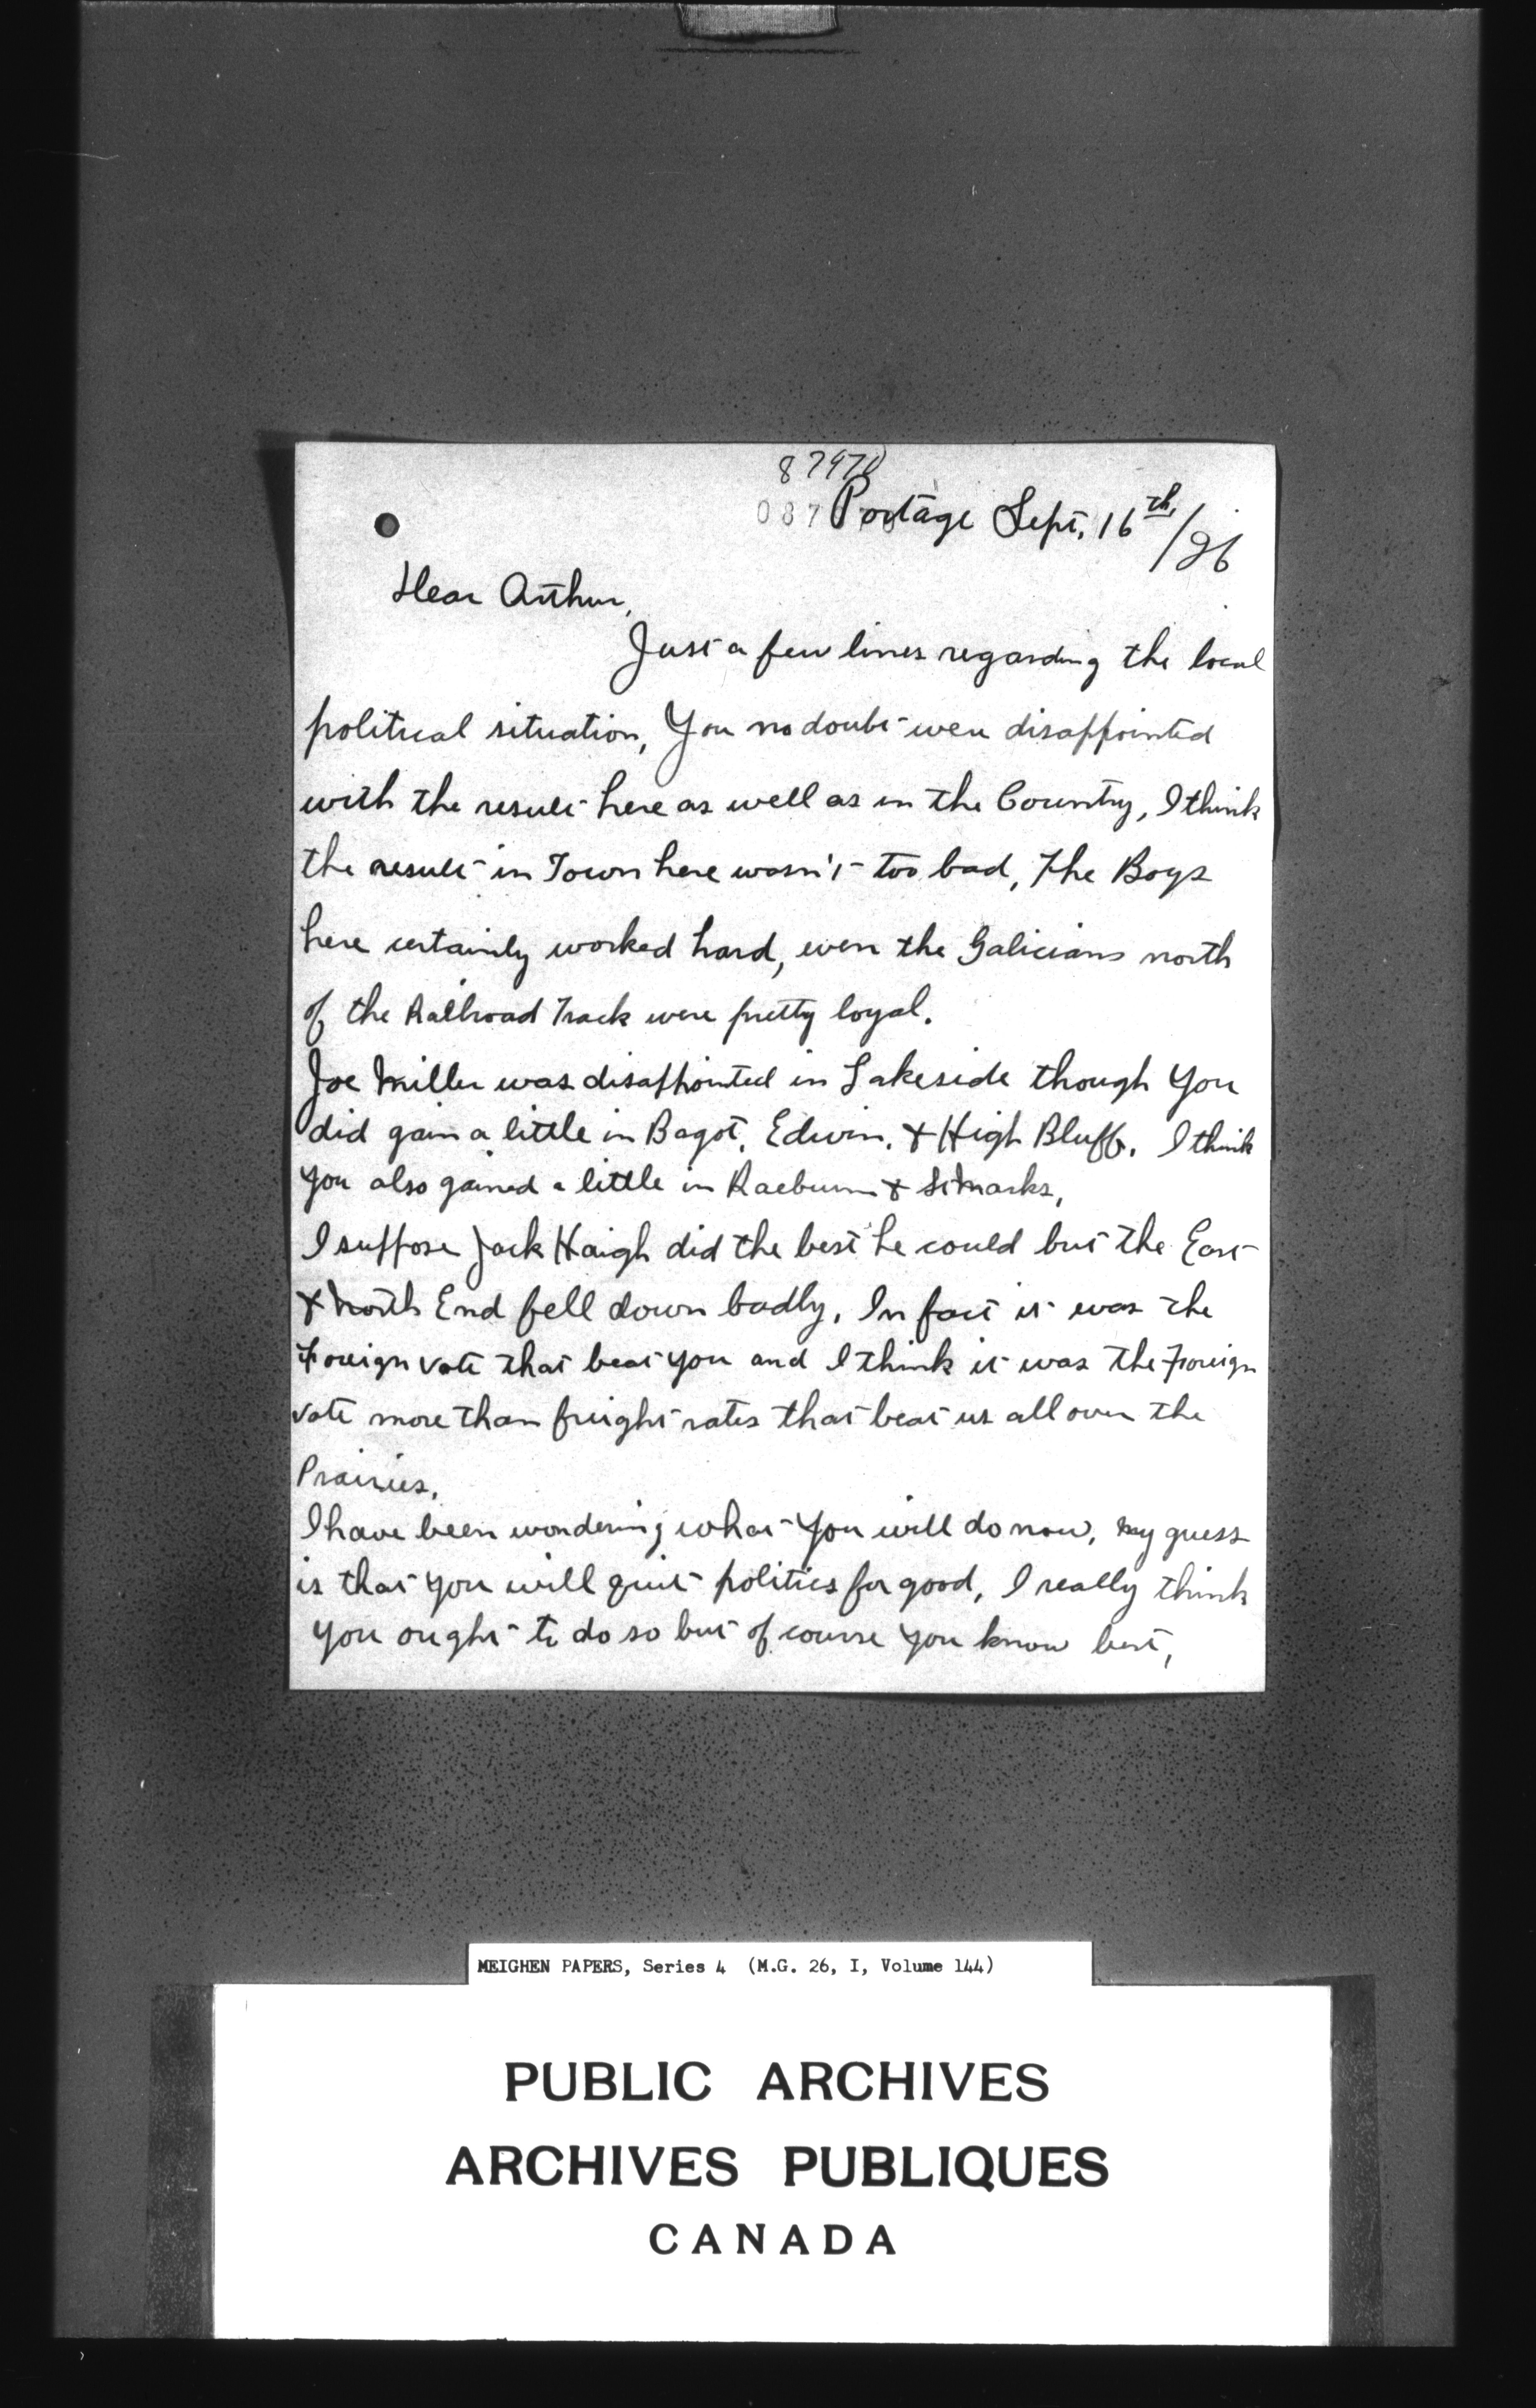 87970
087
Portage Sept, 16th/26
Dear Arthur,
Just a few lines regarding the local
political situation, You no doubt were disappointed
with the result here as well as in the Country, I think
the result in Town here wasn't too bad, The Boys
here certainly worked hard, even the Galicians north
of the Railroad Track were pretty loyal.
Joe Miller was disappointed in Lakeside though You
did gain a little in Bagot, Edwin, & High Bluff. I think
you also gained a little in Raeburn & St Marks,
I suppose Jack Haigh did the best he could but the East
& North End fell down badly, In fact it was the
Foreign vote that beat you and I think it was the Foreign
vote more than freight rates that beat us all over the
Prairies.
I have been wondering what You will do now, my guess
is that you will quit politics for good, I really think
you ought to do so but of course you know best,
MEIGHEN PAPERS, Series 4 (M.G. 26, I, Volume 144)
PUBLIC ARCHIVES
ARCHIVES PUBLIQUES
CANADA